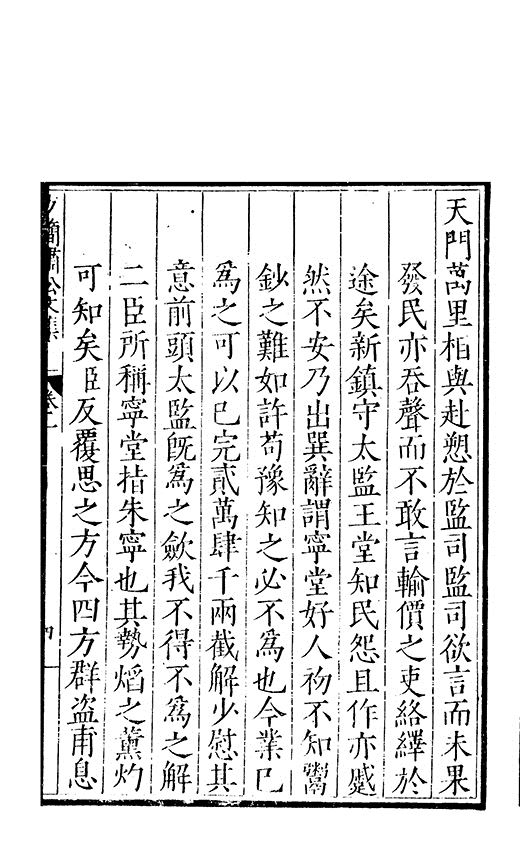 天門萬里相與赴愬於監司監司欲言而未果
發民亦吞聲而不敢言輸價之吏絡繹於
途矣新鎮守太監王堂知民怨且作亦慼
然不安乃出巽辭謂寧堂好人初不知鬻
鈔之難如許苟豫知之必不爲也今業已
爲之可以已完貳萬肆千兩截解少慰其
意前頭太監旣爲之歛我不得不爲之解
二臣所稱寧堂指朱寧也其勢焰之薰灼
可知矣臣反覆思之方今四方群盗甫息
簡肅公文集
卷一
四